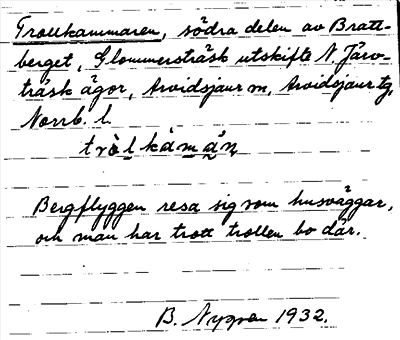 Trollkammaren, södra delen av Bratt-
berget, Glommersträsk utskifte N. Järv-
träsk ägor, Arvidsjaur m, Arvidsjaur tg,
Norrb. l.
tròlkåmàṇ
Bergflyggen resa sig som husväggar,
och man har trott trollen bo där.
B. Nygren 1932.